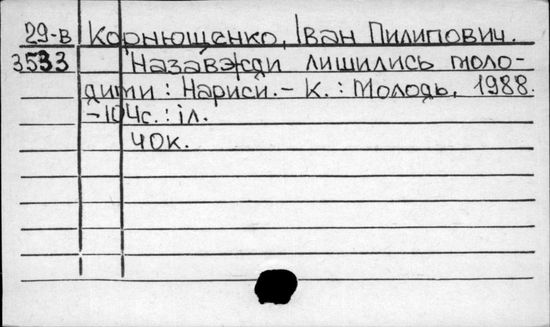 29-в Корнющенко, Іван Пилипович.
3533 Назавжди лишились моло-
дими: Нариси. - К.: Молодь, 1988.
- 104с.: іл.
40к.